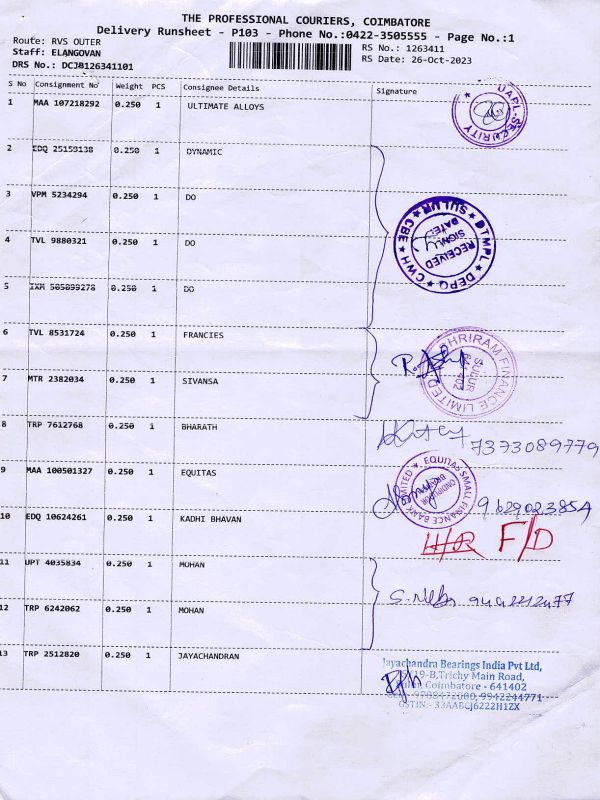 THE PROFESSIONAL COURIERS, COIMBATORE
Delivery Runsheet - P103 - Phone No.:0422-3505555 - Page No.:1
Route: RVS OUTER
Staff: ELANGOVAN
DRS No.: DCJB126341101
RS No.: 1263411
RS Date: 26-Oct-2023
S No Consignment No Weight PCS Consignee Details Signature
1 MAA 107218292 0.250 1 ULTIMATE ALLOYS
UAPL-SECURITY
2 EDQ 25159138 0.250 1 DYNAMIC
3 VPM 5234294 0.250 1 DO
4 TVL 9880321 0.250 1 DO
DTMPL ★ DEPO ★ CWH ★ CBE ★ SULUR
RECEIVED
SIGN
DATE
5 IXM 505099278 0.250 1 DO
6 TVL 8531724 0.250 1 FRANCIES
SHRIRAM FINANCE LIMITED
SULUR
641 402
7 MTR 2382034 0.250 1 SIVANSA
8 TRP 7612768 0.250 1 BHARATH
7373089779
9 MAA 100501327 0.250 1 EQUITAS
EQUITAS SMALL FINANCE BANK LIMITED
9629023854
10 EDQ 10624261 0.250 1 KADHI BHAVAN
F/D
11 UPT 4035834 0.250 1 MOHAN
12 TRP 6242062 0.250 1 MOHAN
13 TRP 2512820 0.250 1 JAYACHANDRAN
Jayachandra Bearings India Pvt Ltd,
19-B,Trichy Main Road,
Coimbatore - 641402
9942244771
GSTIN:- 33AABCJ6222H1ZX